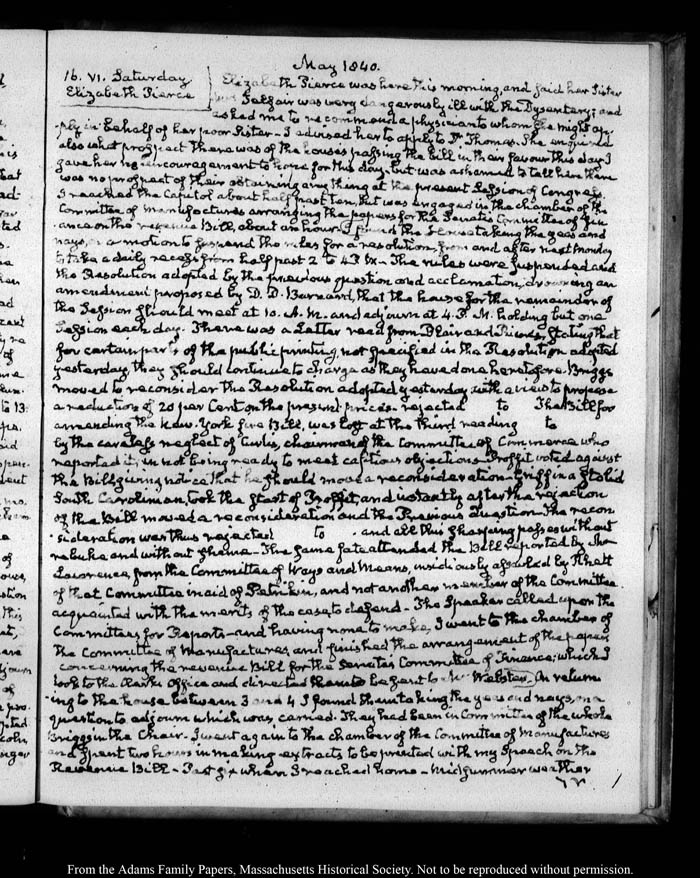 May 1840.
16. VI. Saturday
Elizabeth Pierce
Elizabeth Pierce was here this morning, and said her Sister
Talfair was very dangerously ill with the Dysentery; and
asked me to recommend a physician to whom she might ap-
-ply in behalf of her poor Sister - I advised her to apply to Dr Thomas. She enquired
also what prospect there was of the house's passing the bill in their favour this day. I
gave her no encouragement to hope for this day, but was ashamed to tell her there
was no prospect of their obtaining any thing at the present Session of Congress.
I reached the Capitol about half past ten, but was engaged in the chamber of the
Committee of Manufactures arranging the papers for the Senate's Committee of Fin-
-ance on the revenue Bill, about an hour. I found the House taking the yeas and
nays, on a motion to suspend the rules for a resolution, from and after next Monday
to take a daily recess from half past 2 to 4 P.M. - The rules were suspended and
the Resolution adopted by the previous question and acclamation, drowning an
amendment proposed by D. D. Barnard, that the house for the remainder of
the Session should meet at 10. A.M. and adjourn at 4. P.M. holding but one
Session each day. There was a Letter read from Blair and Rives, stating that
for certain parts of the public printing, not specified in the Resolution adopted
yesterday, they should continue to charge as they have done heretofore. Briggs
moved to reconsider the Resolution adopted yesterday, with a view to propose
a reduction of 20 per Cent on the present prices - rejected to The Bill for
amending the New-York fire Bill, was lost at the third reading to
by the careless neglect of Curtis, chairman of the Committee of Commerce who
reported it, in not being ready to meet captious objections. Proffit voted against
the Bill giving notice that he should move a reconsideration - Griffin a stolid
South Carolinian, took the start of Proffit, and instantly after the rejection
of the Bill moved a reconsideration and the Previous Question - The recon
-sideration was thus rejected to . and all this sharping passes without
rebuke and without shame - The same fate attended the Bill reported by Abb.
Lawrence, from the Committee of Ways and Means, insidiously assailed by Rhett
of that Committee in aid of Petrikin, and not another member of the Committee
acquainted with the merits of the case to defend - The Speaker called upon the
Committees for Reports - and having none to make, I went to the chamber of
the Committee of Manufactures, and finished the arrangement of the papers
concerning the revenue Bill for the Senate's Committee of Finance; which I
took to the Clerk's Office and directed them to be sent to Mr Webster. On return
-ing to the house between 3 and 4 I found them taking the yeas and nays, on a
question to adjourn which was carried. They had been in Committee of the whole
Briggs in the Chair - I went again to the chamber of the Committee of Manufactures
and spent two hours in making extracts to be printed with my Speech on the
Revenue Bill - Past six when I reached home - Midsummer weather
From the Adams Family Papers, Massachusetts Historical Society. Not to be reproduced without permission.